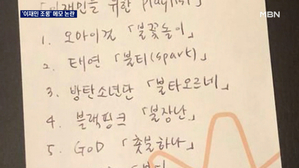 '이재민 조롱' 메모 논란
MBN
「이재민을 위한 Playlist」
1. 오마이걸 「불꽃놀이」
2. 태연 「불티(Spark)」
3. 방탄소년단 「불타오르네」
4. 블랙핑크 「불장난」
5. GOD 「촛불하나」